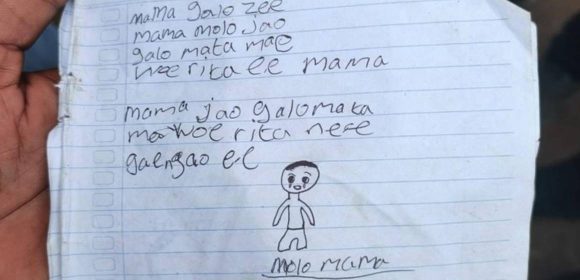 mama galo zee
mama molo jao
galo mata mae
woe rita ee mama
mama jao galomata
ma woe rita nere
gaengao e-e
molo mama